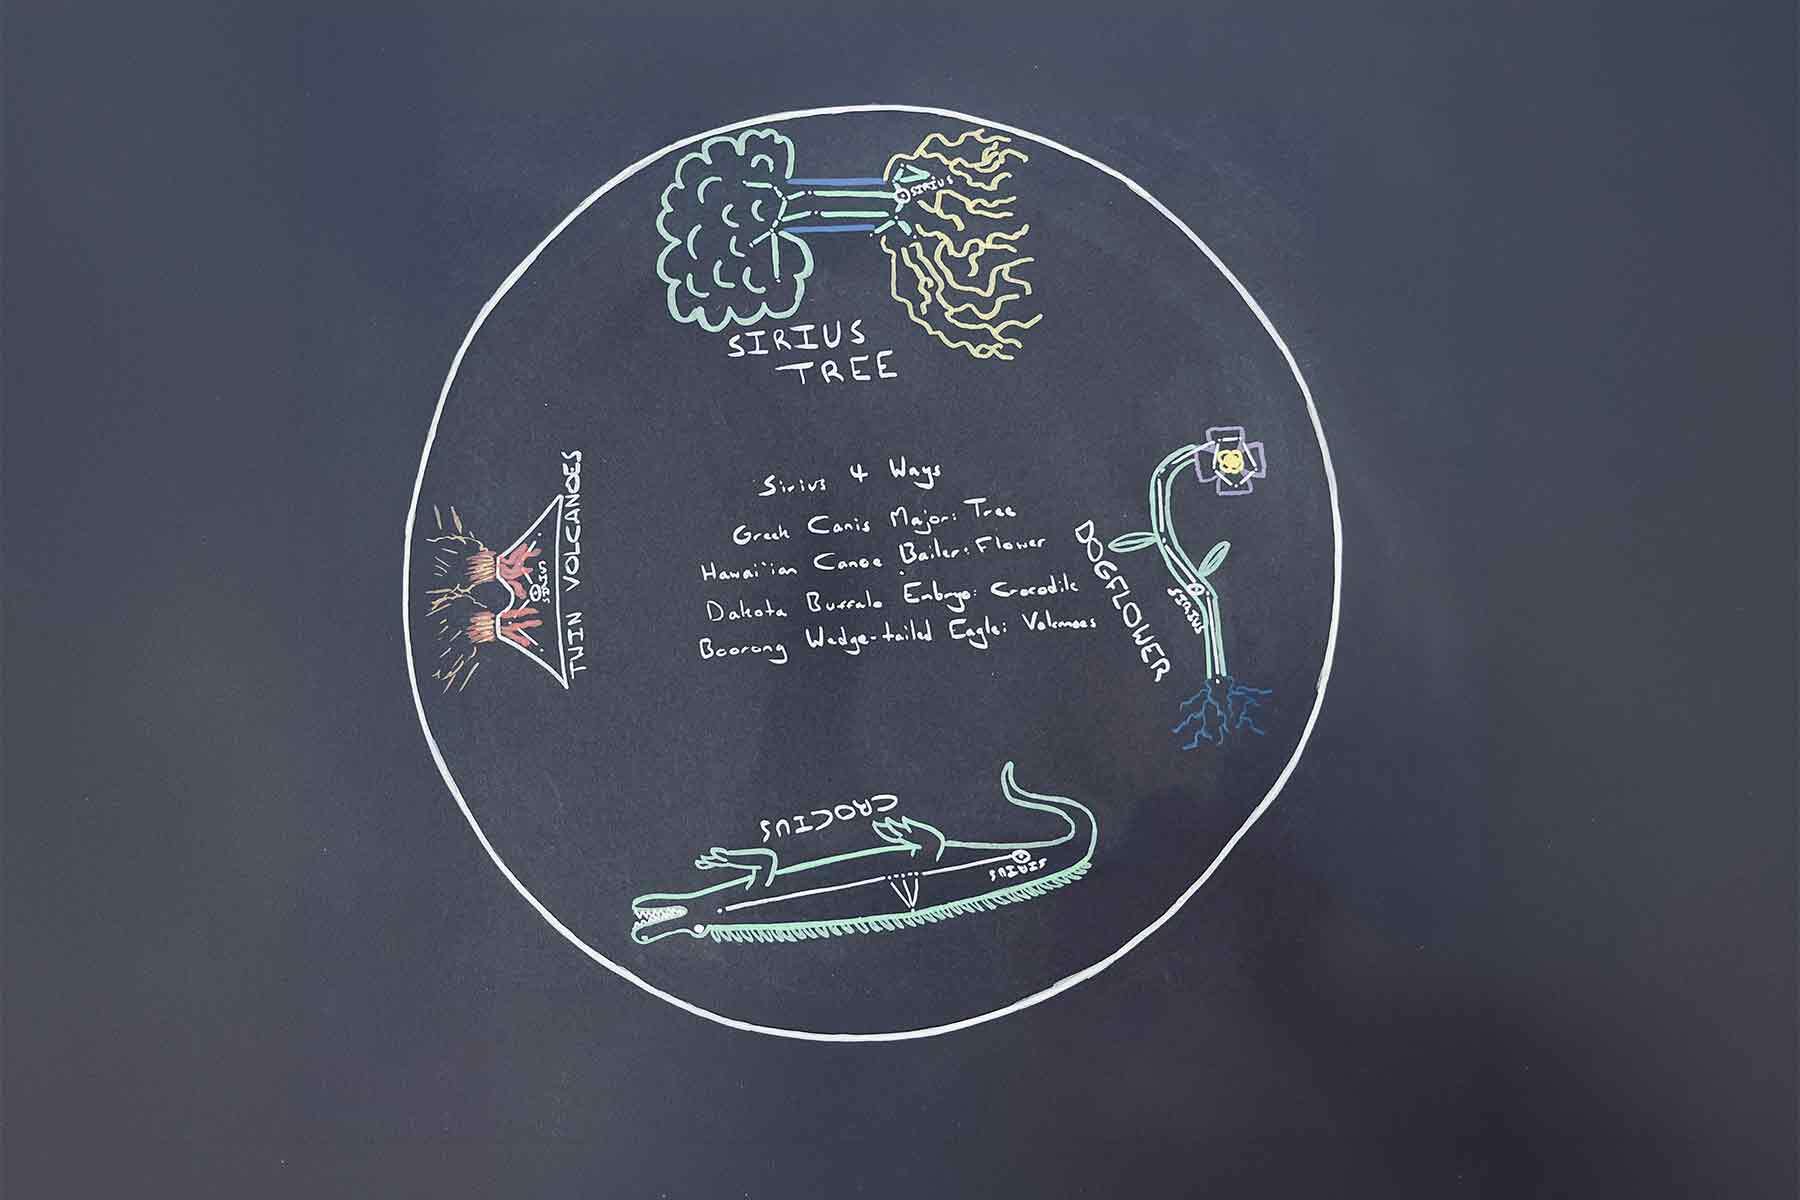 SIRIUS
SIRIUS
TREE
Sirius 4 Ways
Greek Canis Major: Tree
Hawai'ian Canoe Bailer: Flower
Dakota Buffalo Embryo: Crocodile
Boorong Wedge-tailed Eagle: Volcanoes
TWIN VOLCANOES
SIRIUS
DOGFLOWER
SIRIUS
CROCIUS
SIRIUS